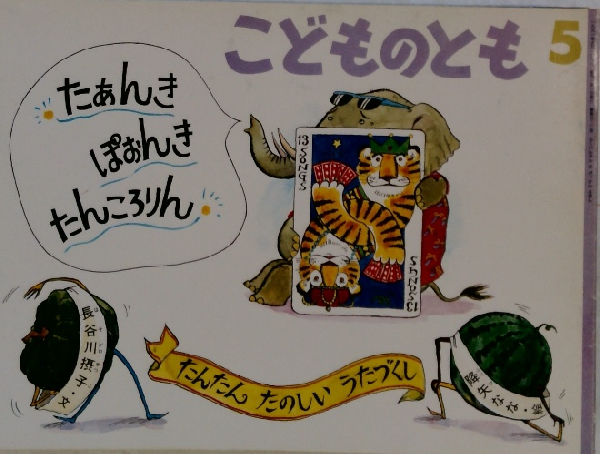 こどものとも 5
たあんき
ぽおんき
たんころりん
13 SONGS
13 SONGS
たんたん たのしい うたづくし
長谷川摂子・文
降矢なな・画